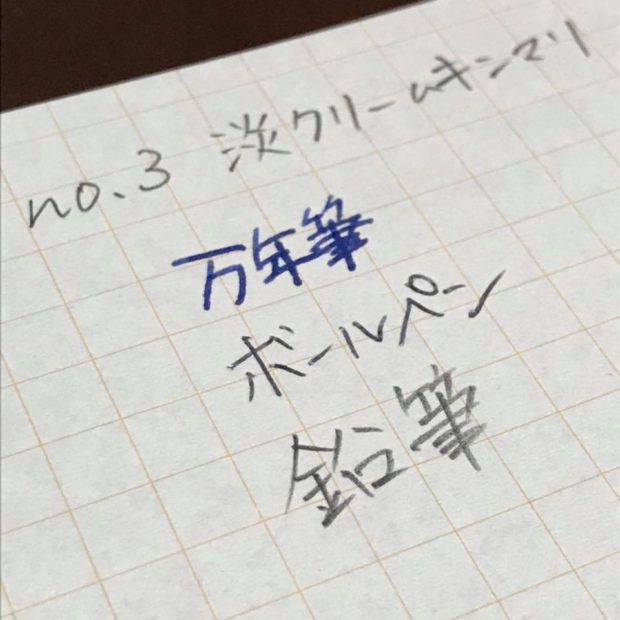 no.3 淡クリームキンマリ
万年筆
ボールペン
鉛筆